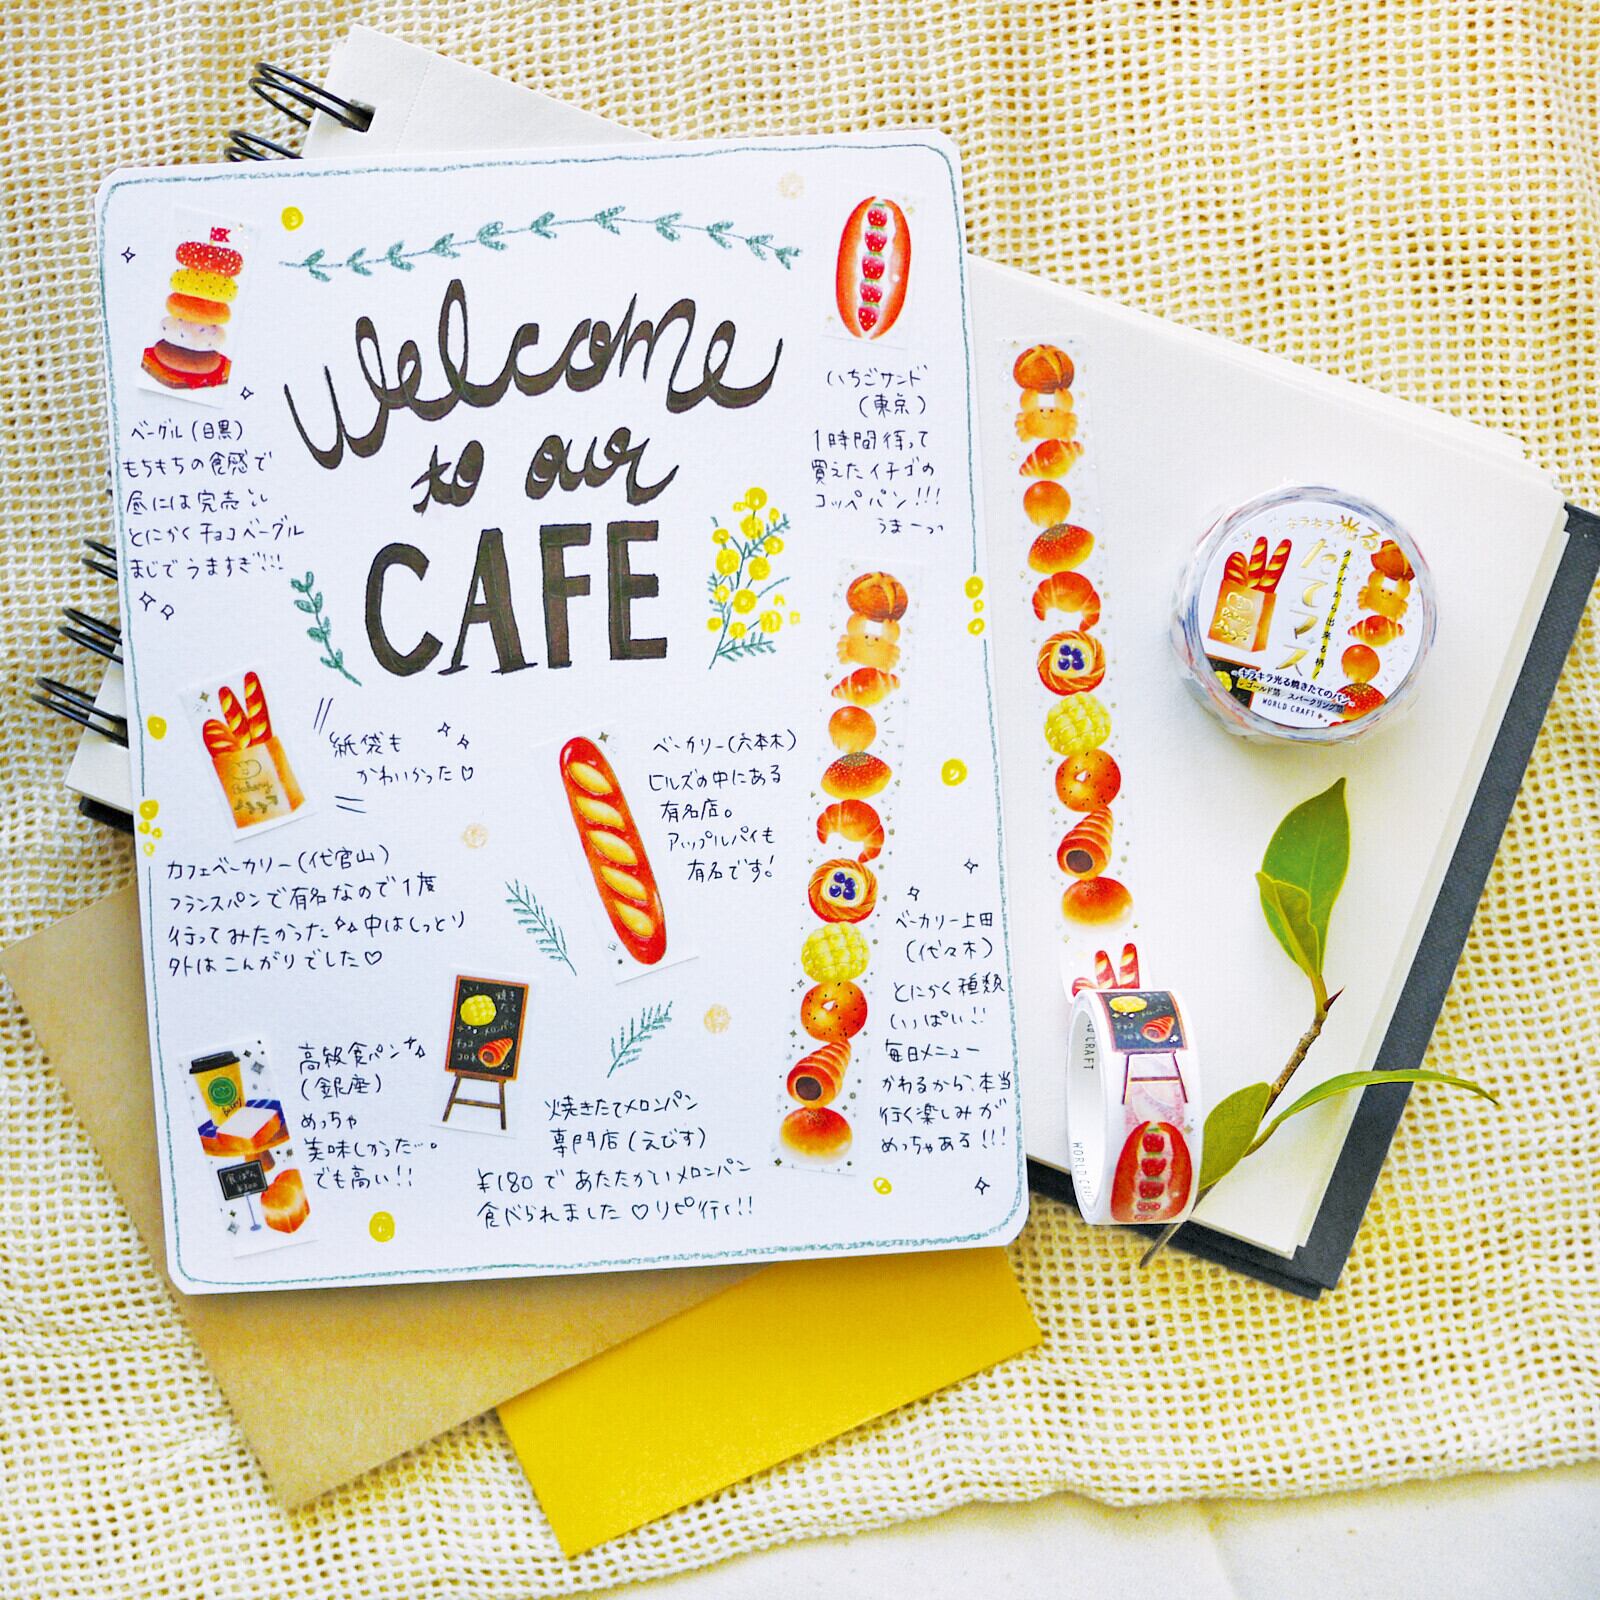 Welcome
to our
CAFE
ベーグル(目黒)
もちもちの食感で
昼には完売
とにかくチョコベーグル
まじでうますぎ!!!
いちごサンド
(東京)
1時間待って
買えたイチゴの
コッペパン!!!
うまーっ
紙袋も
かわいかった♡
Bakery
カフェベーカリー(代官山)
フランスパンで有名なので1度
行ってみたかった 中はしっとり
外はこんがりでした♡
ベーカリー(六本木)
ヒルズの中にある
有名店。
アップルパイも
有名です!
ベーカリー上田
(代々木)
とにかく種類
いっぱい!!
毎日メニュー
かわるから、本当
行く楽しみが
めっちゃある!!!
高級食パン
(銀座)
めっちゃ
美味しかった…。
でも高い!!
焼き
たて
メロンパン
チョコ
コロネ
食ぱん
¥300
焼きたてメロンパン
専門店(えびす)
¥180であたたかいメロンパン
食べられました♡リピ行く!!
キラキラ光る
たてマス
タテだから出来る柄!
Bakery
キラキラ光る焼きたてのパン
ゴールド箔 スパークリング箔
WORLD CRAFT
チョコ
コロネ
WORLD CRAFT